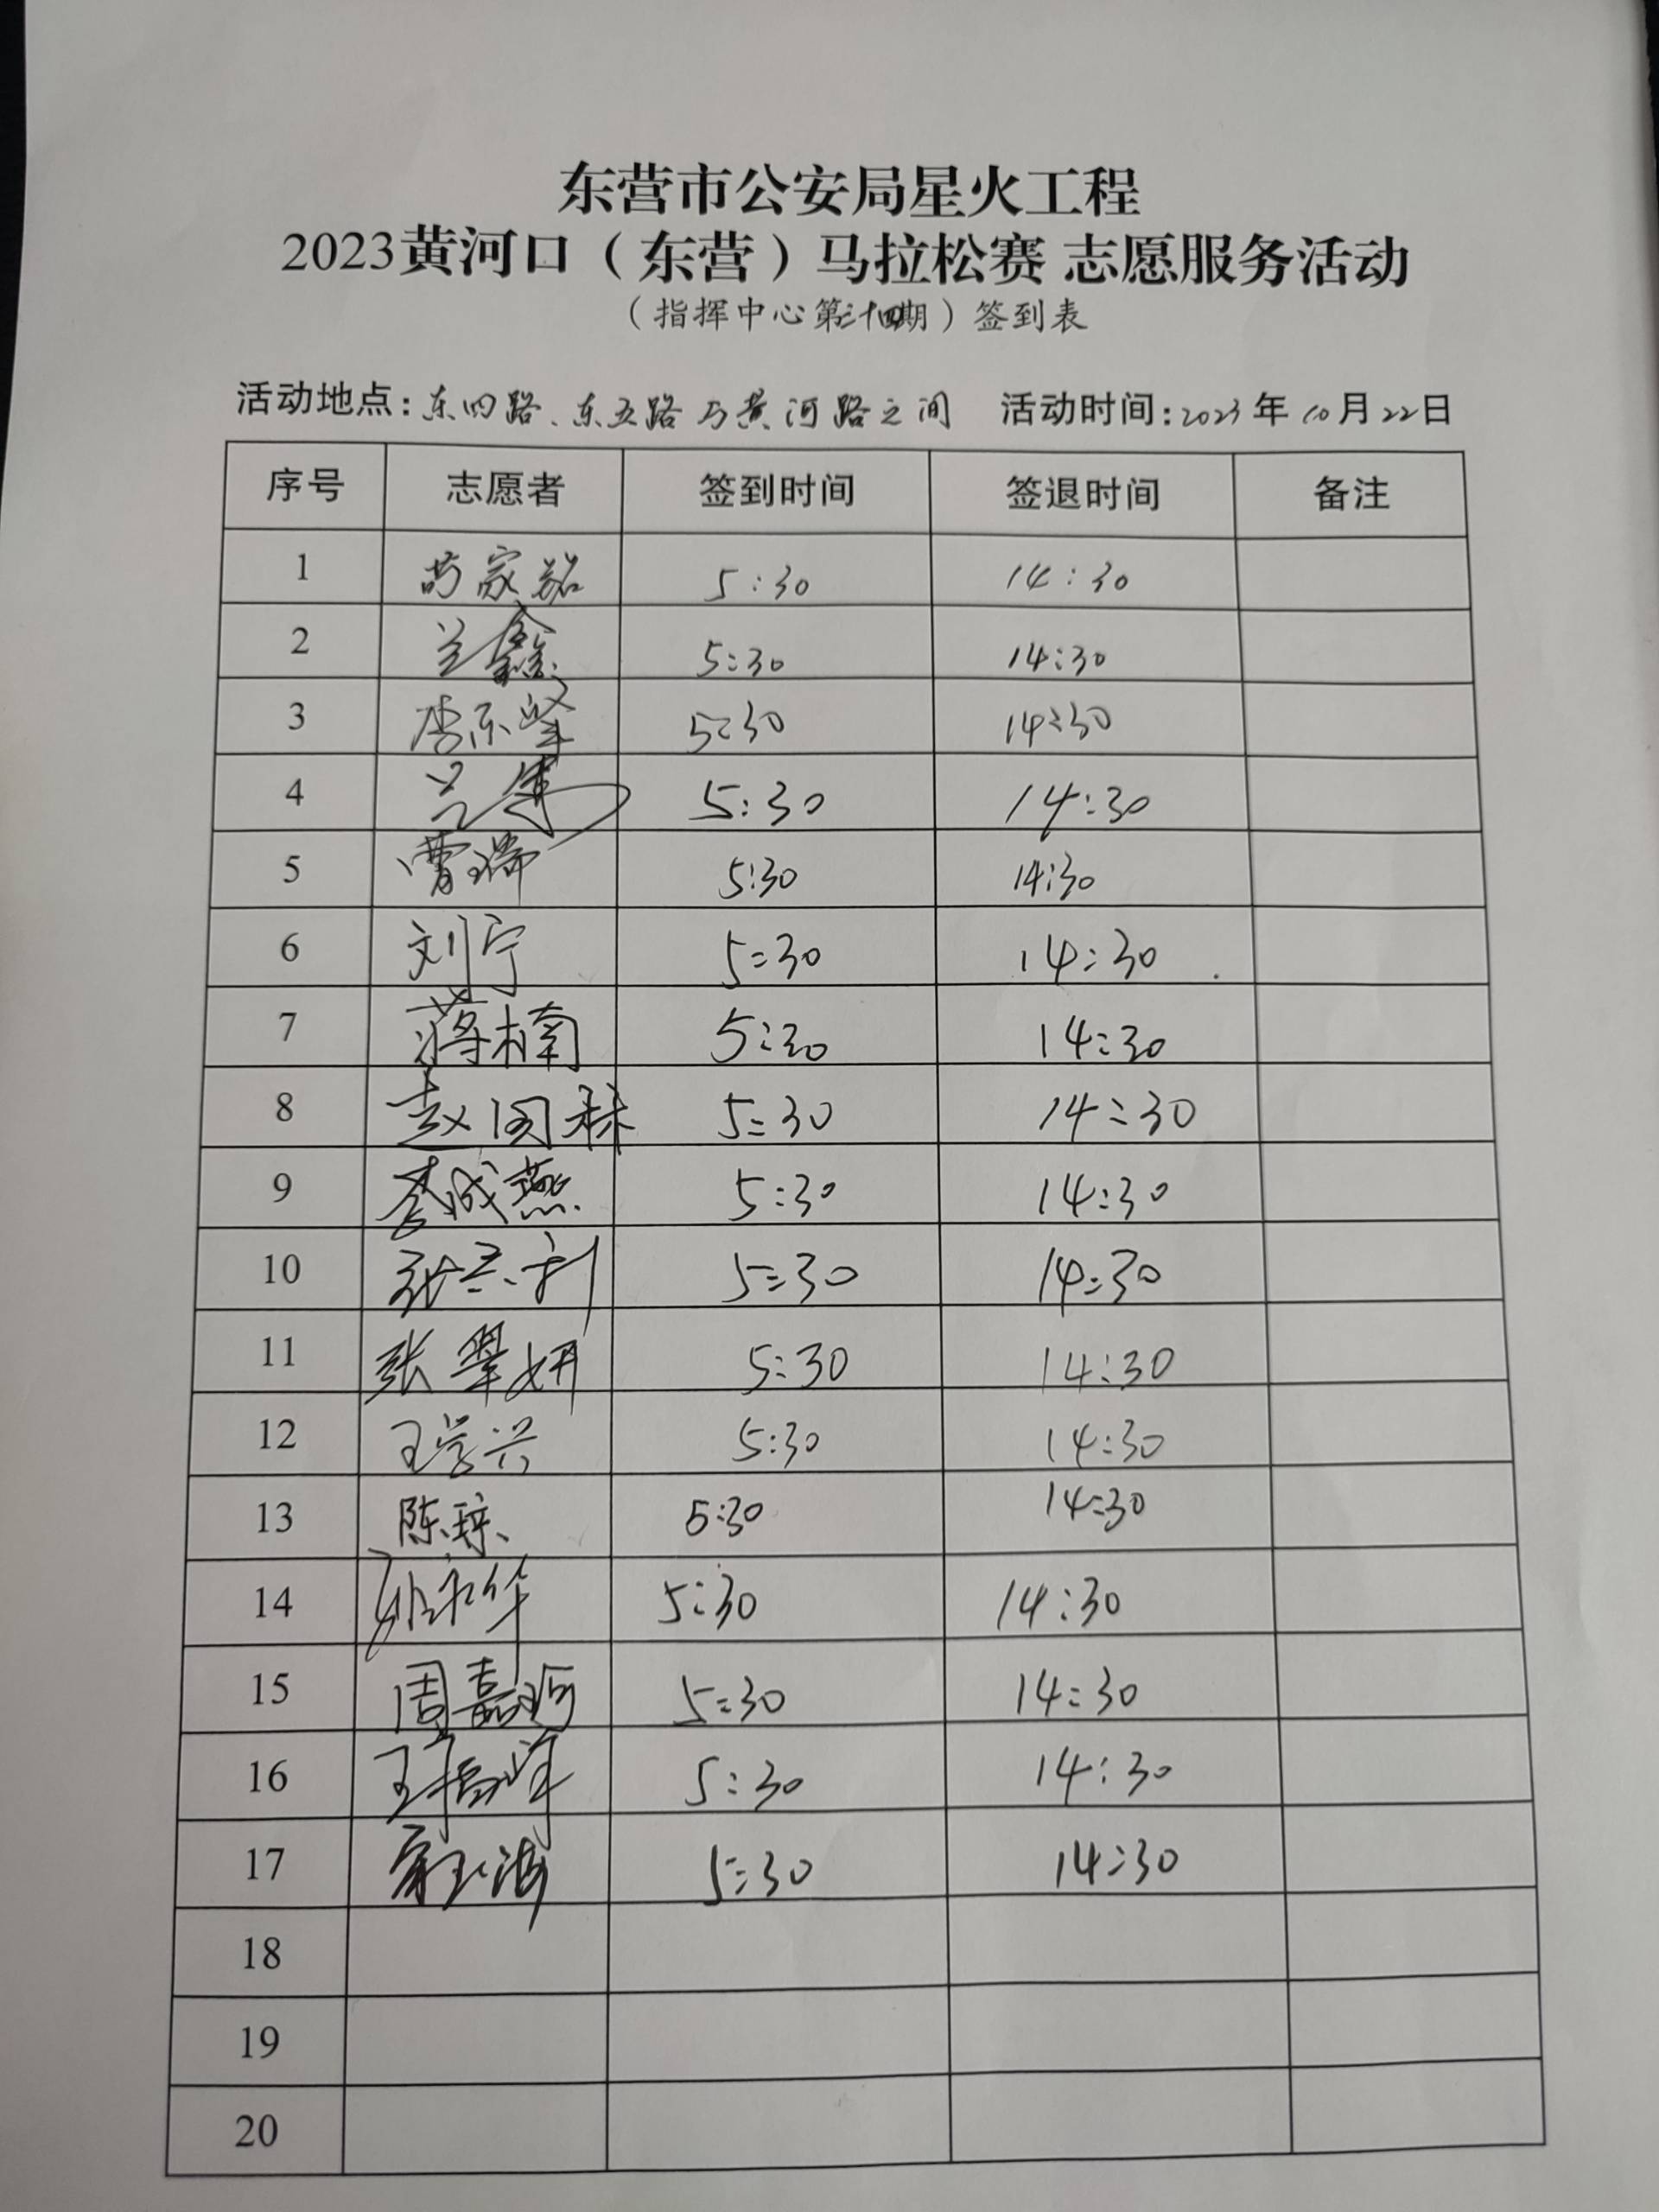 东营市公安局星火工程
2023黄河口（东营）马拉松赛 志愿服务活动
（指挥中心第 期）签到表
活动地点：东四路、东五路与黄河路之间 活动时间：2023年10月22日
序号 志愿者 签到时间 签退时间 备注
1 5:30 14:30
2 兰鑫 5:30 14:30
3 5:30 14:30
4 5:30 14:30
5 曹瑞 5:30 14:30
6 刘宁 5:30 14:30
7 蒋楠 5:30 14:30
8 赵国林 5:30 14:30
9 李成燕 5:30 14:30
10 5:30 14:30
11 张翠妍 5:30 14:30
12 王学兴 5:30 14:30
13 陈琼 5:30 14:30
14 5:30 14:30
15 周嘉珂 5:30 14:30
16 5:30 14:30
17 5:30 14:30
18
19
20